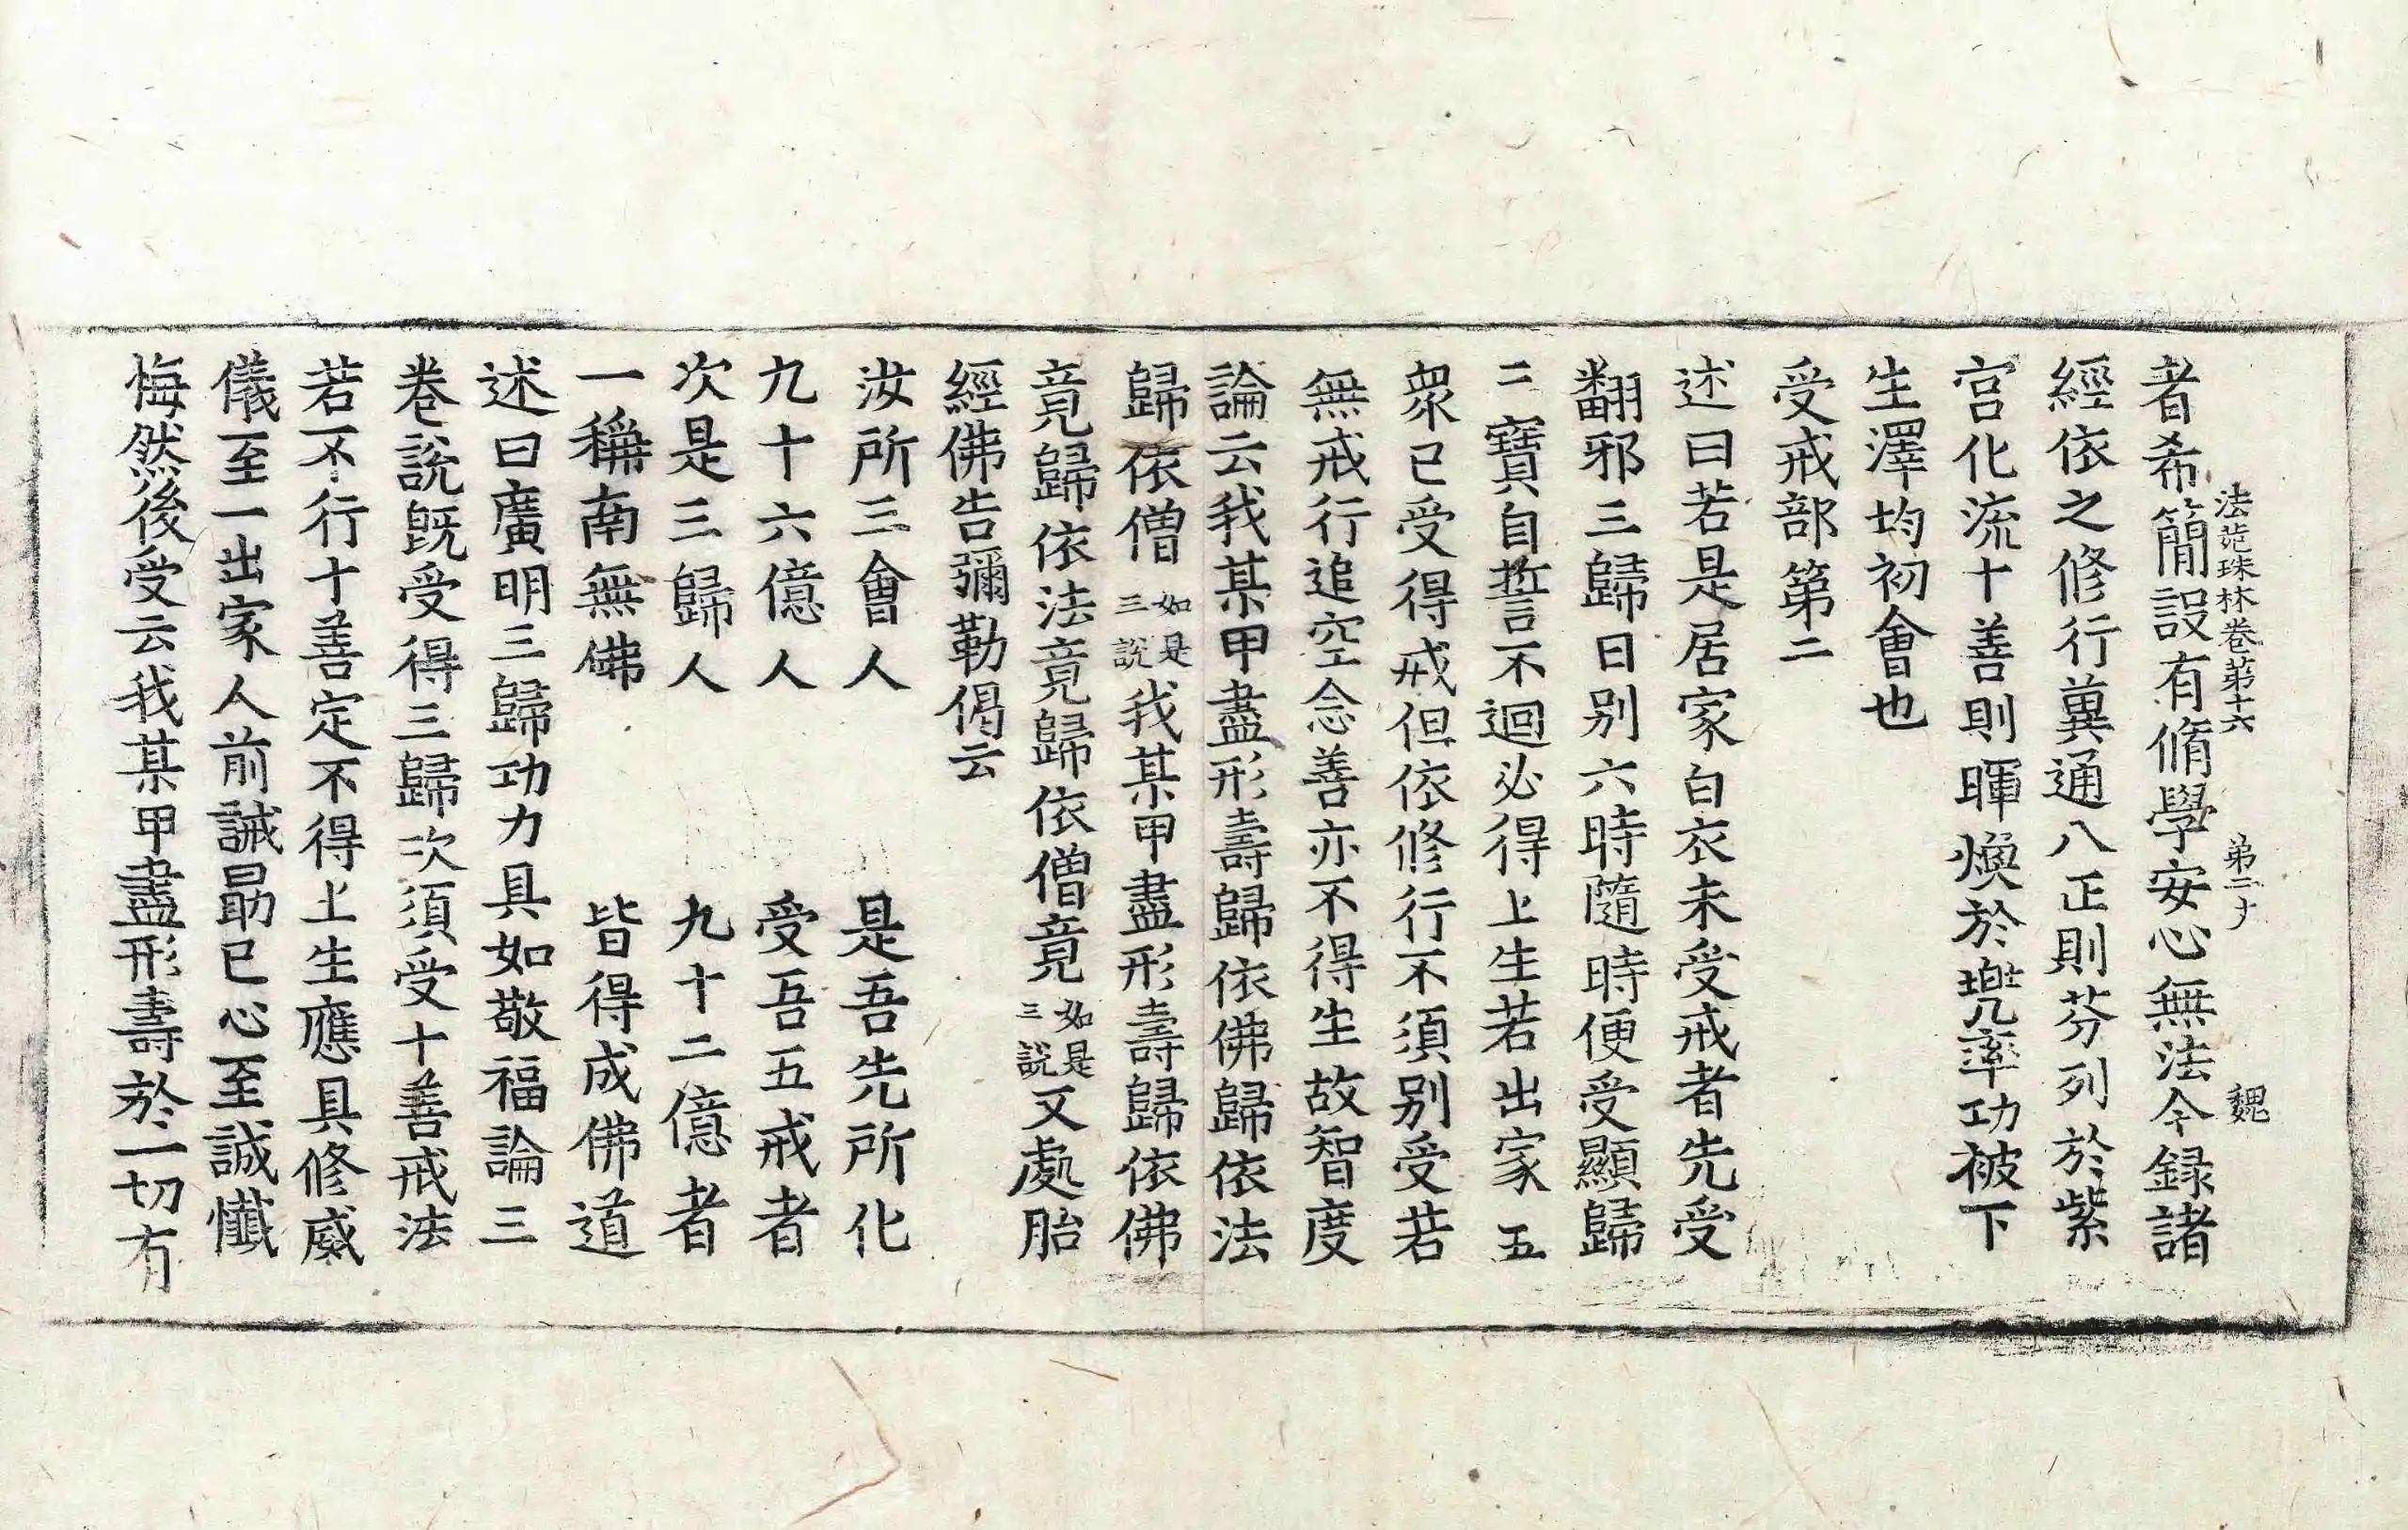 法苑珠林卷第十六 第二十 魏
者希簡設有脩學安心無法今録諸
經依之修行冀通八正則芬列於紫
宫化流十善則暉煥於兠率功被下
生澤均初會也
受戒部第二
述曰若是居家白衣未受戒者先受
翻邪三歸日别六時隨時便受顯歸
三寶自誓不迴必得上生若出家五
衆已受得戒但依修行不須别受若
無戒行追空念善亦不得生故智度
論云我某甲盡形壽歸依佛歸依法
歸依僧如是三說我某甲盡形壽歸依佛
竟歸依法竟歸依僧竟如是三說又處胎
經佛告彌勒偈云
汝所三會人 是吾先所化
九十六億人 受吾五戒者
次是三歸人 九十二億者
一稱南無佛 皆得成佛道
述曰廣明三歸功力具如敬福論三
卷說旣受得三歸次須受十善戒法
若不行十善定不得上生應具修威
儀至一出家人前誡勗已心至誠懺
悔然後受云我某甲盡形壽於一切有